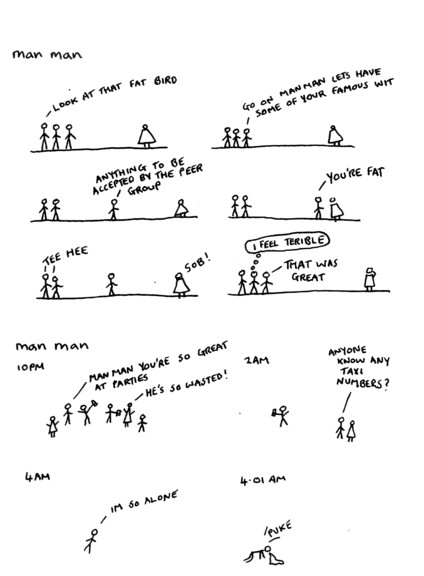 man man
LOOK AT THAT FAT BIRD
GO ON MANMAN LETS HAVE
SOME OF YOUR FAMOUS WIT
ANYTHING TO BE
ACCEPTED BY THE PEER
GROUP
YOU'RE FAT
TEE HEE
SOB!
I FEEL TERIBLE
THAT WAS
GREAT
man man
10PM
MAN MAN YOU'RE SO GREAT
AT PARTIES
HE'S SO WASTED!
2AM
ANYONE
KNOW ANY
TAXI
NUMBERS?
4AM
IM SO ALONE
4.01 AM
PUKE